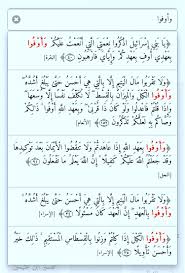 وأوفوا
﴿يَا بَنِي إِسْرَائِيلَ اذْكُرُوا نِعْمَتِيَ الَّتِي أَنْعَمْتُ عَلَيْكُمْ وَأَوْفُوا
بِعَهْدِي أُوفِ بِعَهْدِكُمْ وَإِيَّايَ فَارْهَبُونِ ﴿٤٠﴾ [البقرة]
﴿وَلَا تَقْرَبُوا مَالَ الْيَتِيمِ إِلَّا بِالَّتِي هِيَ أَحْسَنُ حَتَّى يَبْلُغَ أَشُدَّهُ
وَأَوْفُوا الْكَيْلَ وَالْمِيزَانَ بِالْقِسْطِ لَا نُكَلِّفُ نَفْسًا إِلَّا وُسْعَهَا
وَإِذَا قُلْتُمْ فَاعْدِلُوا وَلَوْ كَانَ ذَا قُرْبَى وَبِعَهْدِ اللَّهِ أَوْفُوا ذَلِكُمْ
وَصَّاكُمْ بِهِ لَعَلَّكُمْ تَذَكَّرُونَ ﴿١٥٢﴾ [الأنعام]
﴿وَأَوْفُوا بِعَهْدِ اللَّهِ إِذَا عَاهَدْتُمْ وَلَا تَنْقُضُوا الْأَيْمَانَ بَعْدَ تَوْكِيدِهَا
وَقَدْ جَعَلْتُمُ اللَّهَ عَلَيْكُمْ كَفِيلًا إِنَّ اللَّهَ يَعْلَمُ مَا تَفْعَلُونَ ﴿٩١﴾
[النحل]
﴿وَلَا تَقْرَبُوا مَالَ الْيَتِيمِ إِلَّا بِالَّتِي هِيَ أَحْسَنُ حَتَّى يَبْلُغَ أَشُدَّهُ
وَأَوْفُوا بِالْعَهْدِ إِنَّ الْعَهْدَ كَانَ مَسْئُولًا ﴿٣٤﴾ [الإسراء]
﴿وَأَوْفُوا الْكَيْلَ إِذَا كِلْتُمْ وَزِنُوا بِالْقِسْطَاسِ الْمُسْتَقِيمِ ذَلِكَ خَيْرٌ
وَأَحْسَنُ تَأْوِيلًا ﴿٣٥﴾ [الإسراء]